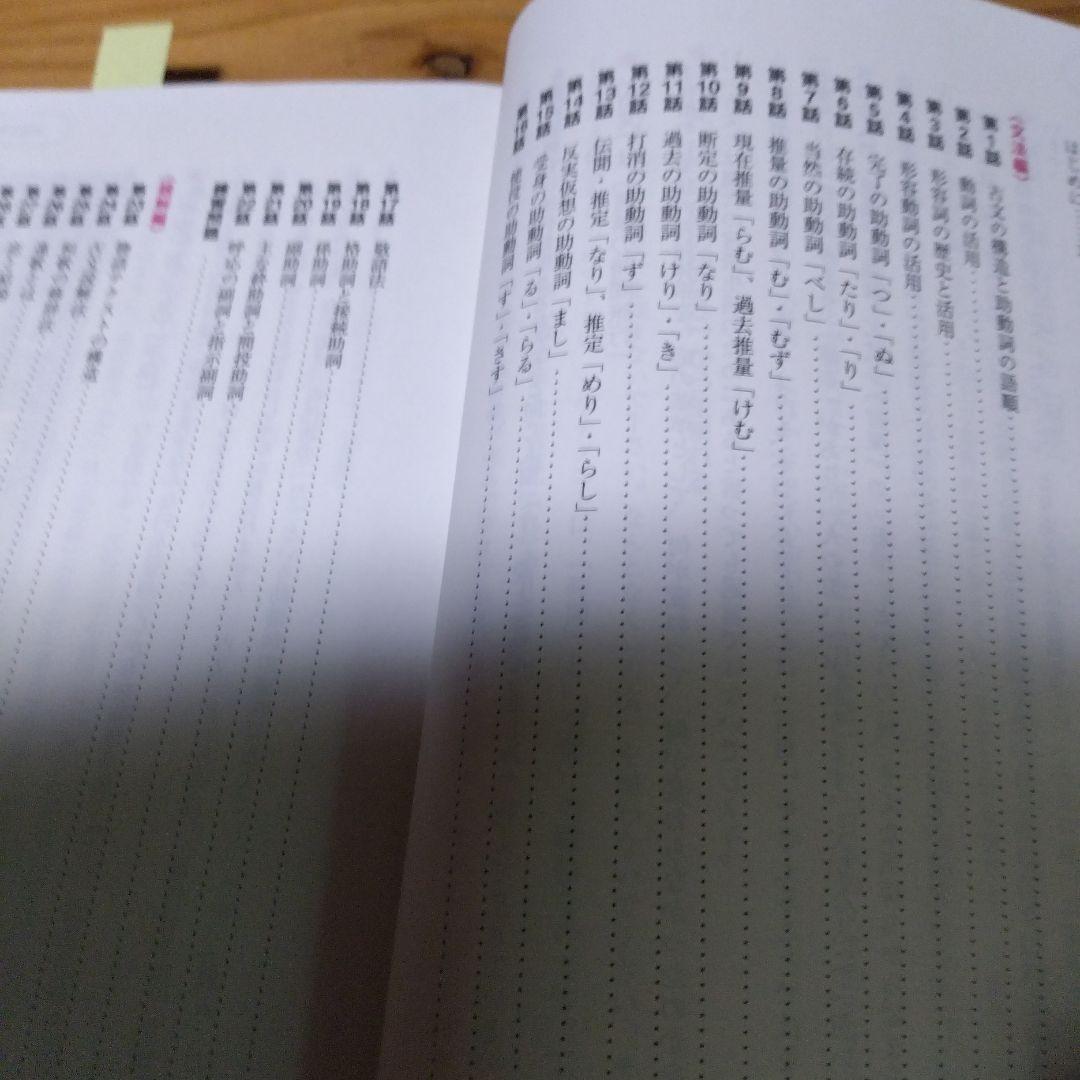 はじめに
〈文法編〉
第1話 古文の構造と助動詞の語順
第2話 動詞の活用
第3話 形容詞の歴史と活用
第4話 形容動詞の活用
第5話 完了の助動詞「つ」・「ぬ」
第6話 存続の助動詞「たり」・「り」
第7話 当然の助動詞「べし」
第8話 推量の助動詞「む」・「むず」
第9話 現在推量「らむ」、過去推量「けむ」
第10話 断定の助動詞「なり」
第11話 過去の助動詞「けり」・「き」
第12話 打消の助動詞「ず」
第13話 伝聞・推定「なり」、推定「めり」・「らし」
第14話 反実仮想の助動詞「まし」
第15話 受身の助動詞「る」・「らる」
第16話 使役の助動詞「す」・「さす」
第17話 敬語法
第18話 格助詞と接続助詞
第19話 係助詞
第20話 副助詞
第21話
第22話 呼応の副詞と指示副詞
練習問題
〈読解編〉
第23話 物語テクストの構造
第24話 古文読解法